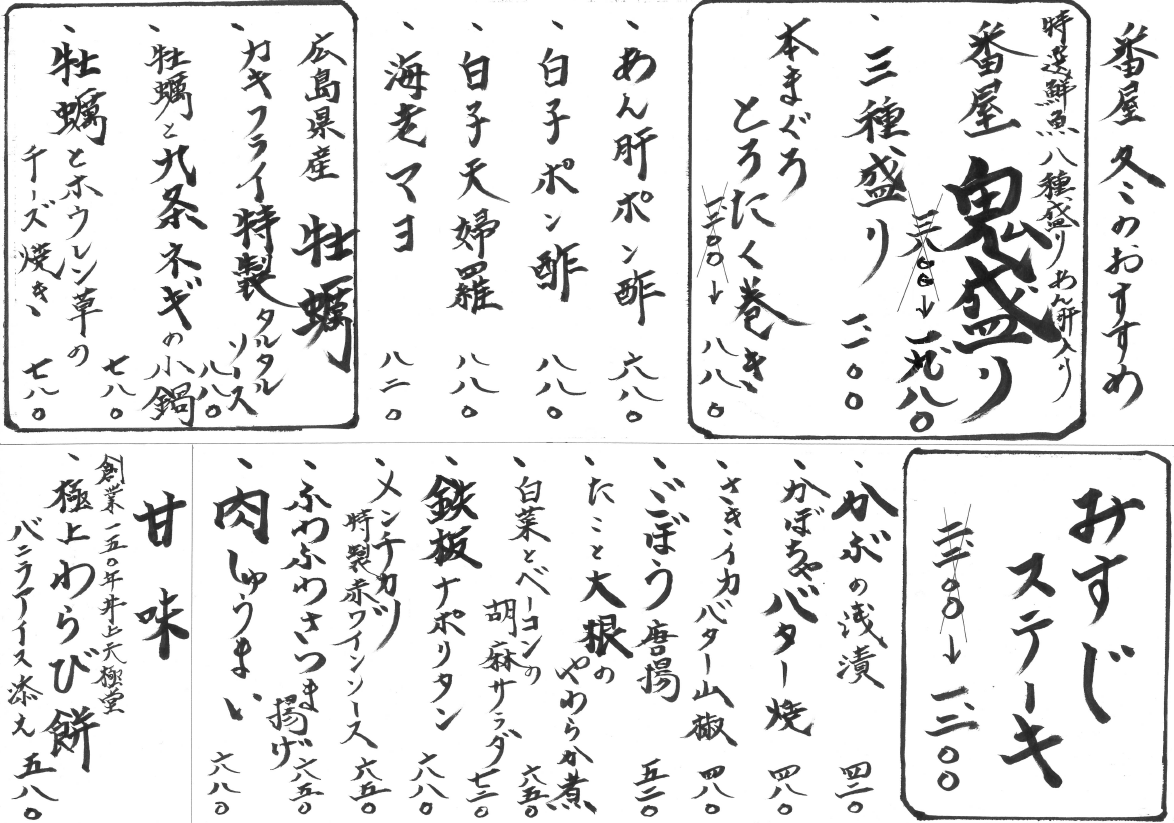 番屋 冬のおすすめ
特選鮮魚八種盛り あん肝入り
番屋 鬼盛り
三八〇〇→一九八〇
、三種盛り 一二〇〇
本まぐろ
とろたく巻き
→八八〇
、あん肝ポン酢 六八〇
、白子ポン酢 八八〇
、白子天婦羅 八八〇
、海老マヨ 八二〇
広島県産 牡蠣
、カキフライ特製タルタルソース 八八〇
、牡蠣と九条ネギの小鍋 七八〇
、牡蠣とホウレン草の
チーズ焼き 七八〇
みすじ
ステーキ
→一三〇〇
、かぶの浅漬 四二〇
、かぼちゃバター焼 四八〇
、さきイカバター山椒 四八〇
、ごぼう唐揚 五二〇
、たこと大根の
やわらか煮 六五〇
、白菜とベーコンの
胡麻サラダ 七二〇
、鉄板ナポリタン 八八〇
、メンチカツ
特製赤ワインソース 六五〇
、ふわふわさつま揚げ 六五〇
、肉しゅうまい 六八〇
甘味
創業一五〇年井上天極堂
、極上わらび餅
バニラアイス添え 五八〇